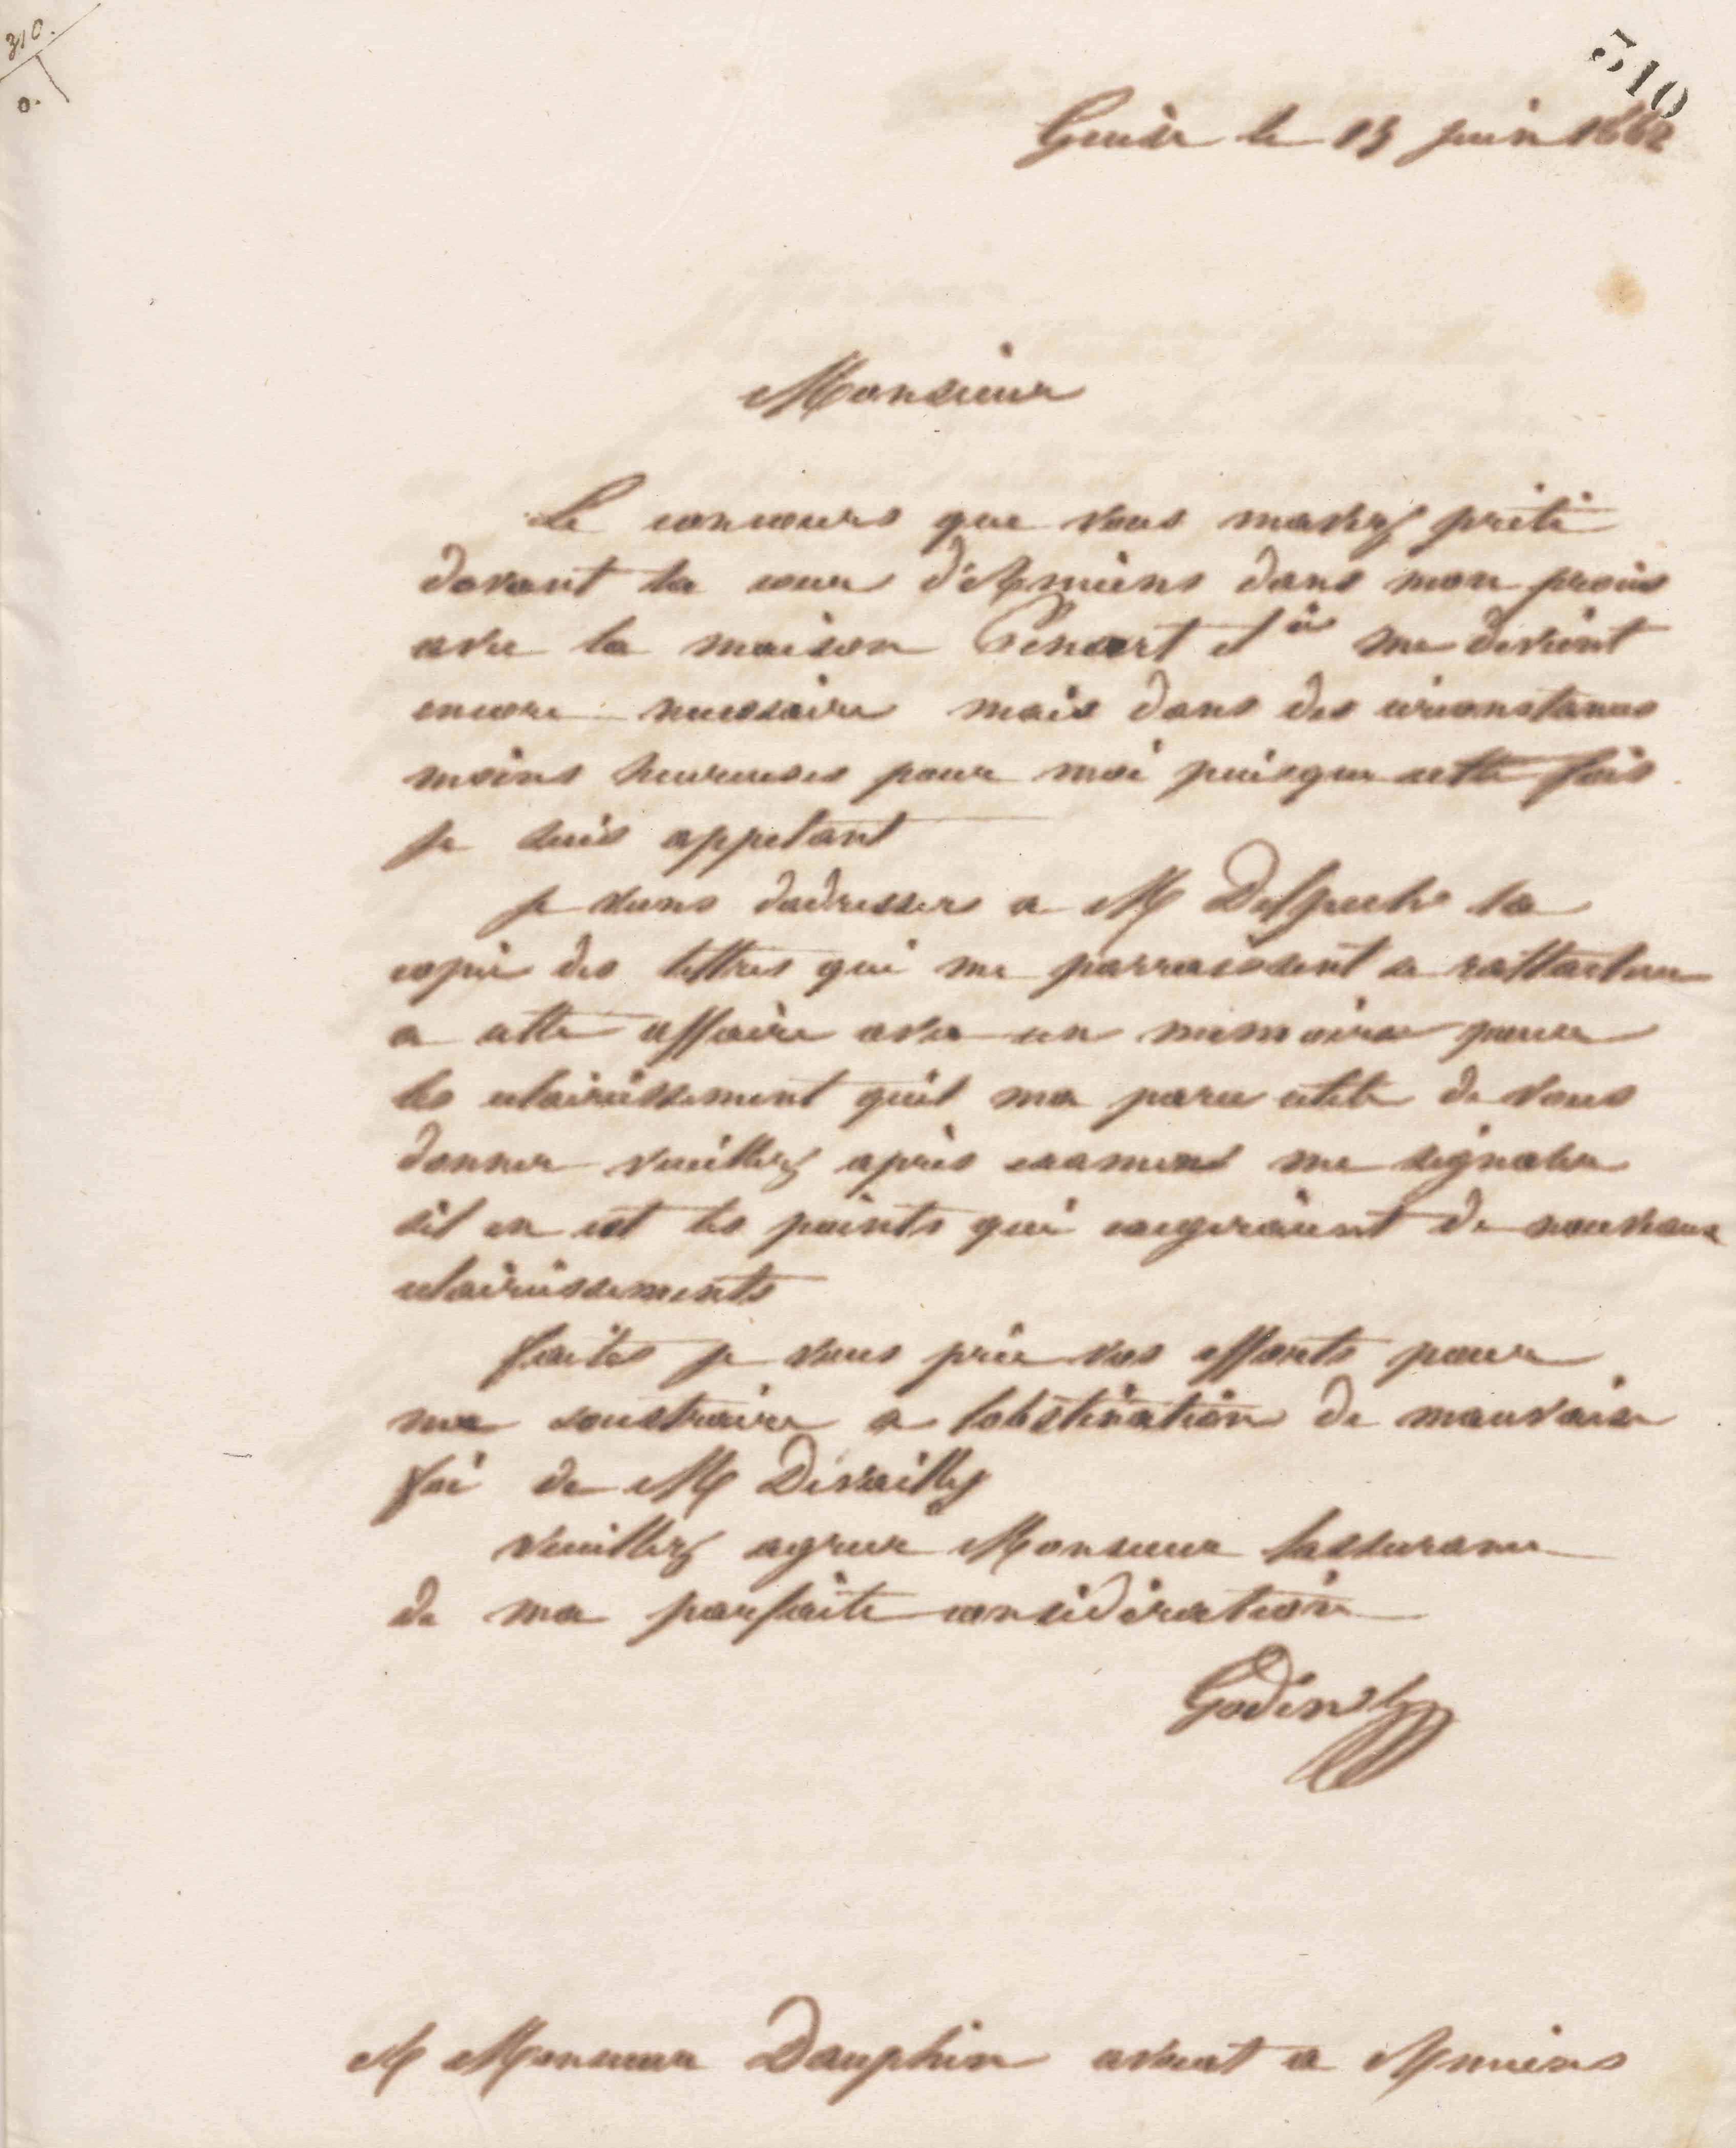 310.
0.
310
Guise le 13 juin 1862
Monsieur
Le concours que vous mavez prêté
devant la cour d'Amiens dans mon procès
avec la maison et Cie me devient
encore necessaire mais dans des circonstances
moins heureuses pour moi puisque cette fois
je suis appelant
je viens dadresser a M la
copie des lettres qui me parraissent se rattacher
a cette affaire avec un memoire pour
les eclaircissement quil ma paru utile de vous
donner veuillez après examens me signaler
sil en est les points qui exigeraient de nouveaux
eclaircissements
faites je vous prie vos efforts pour
me soustraire a lobstination de mauvaise
foi de M Devailly
veuillez agreer Monsieur lassurance
de ma parfaite considération
Godin
A Monsieur Dauphin avocat a Amiens